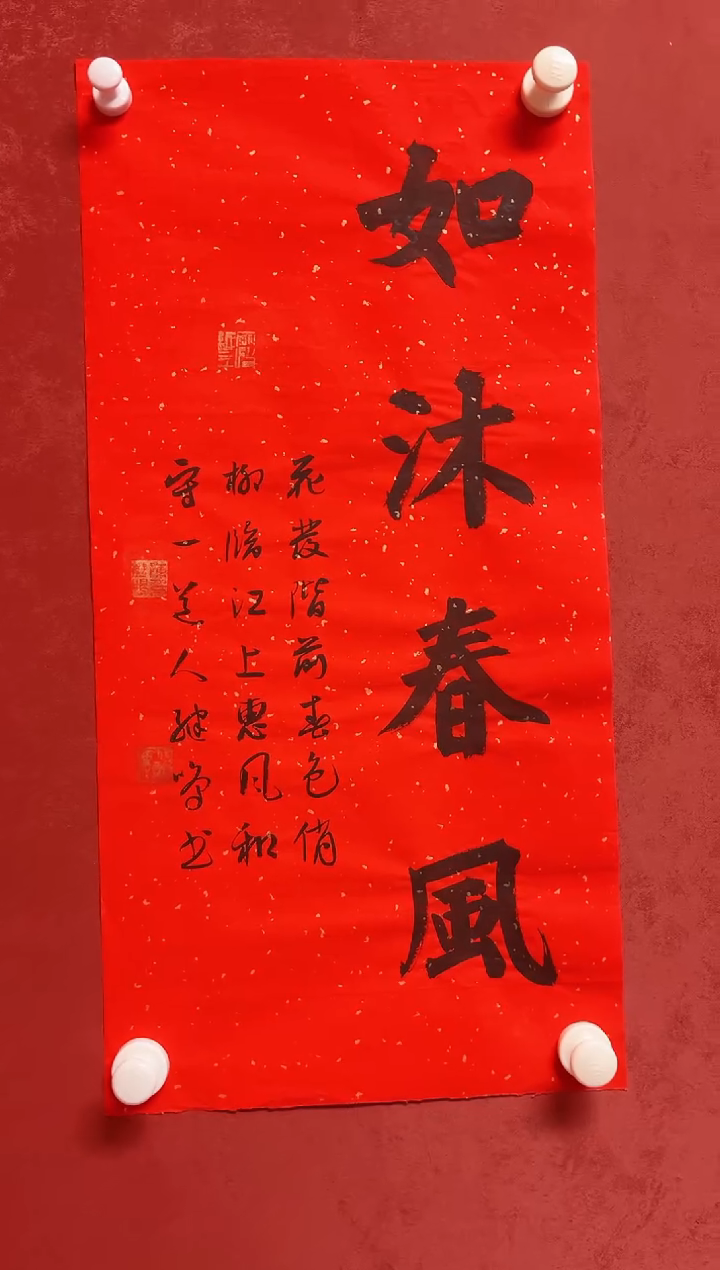 如沐春風
花發階前春色俏
柳臨江上惠风和
守一道人肄鸣书